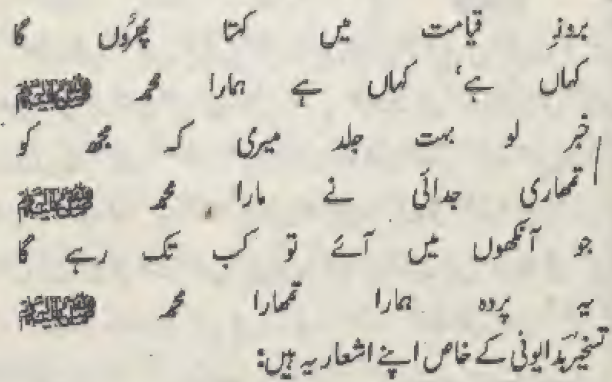 بروزِ قیامت میں کہتا پھروں گا
کہاں ہے، کہاں ہے ہمارا محمد ﷺ
خبر لو بہت جلد میری کہ مجھ کو
تمھاری جدائی نے مارا محمد ﷺ
جو آنکھوں میں آئے تو کب تک رہے گا
یہ پردہ ہمارا تمھارا محمد ﷺ
تسخیر بدایونی کے خاص اپنے اشعار یہ ہیں: